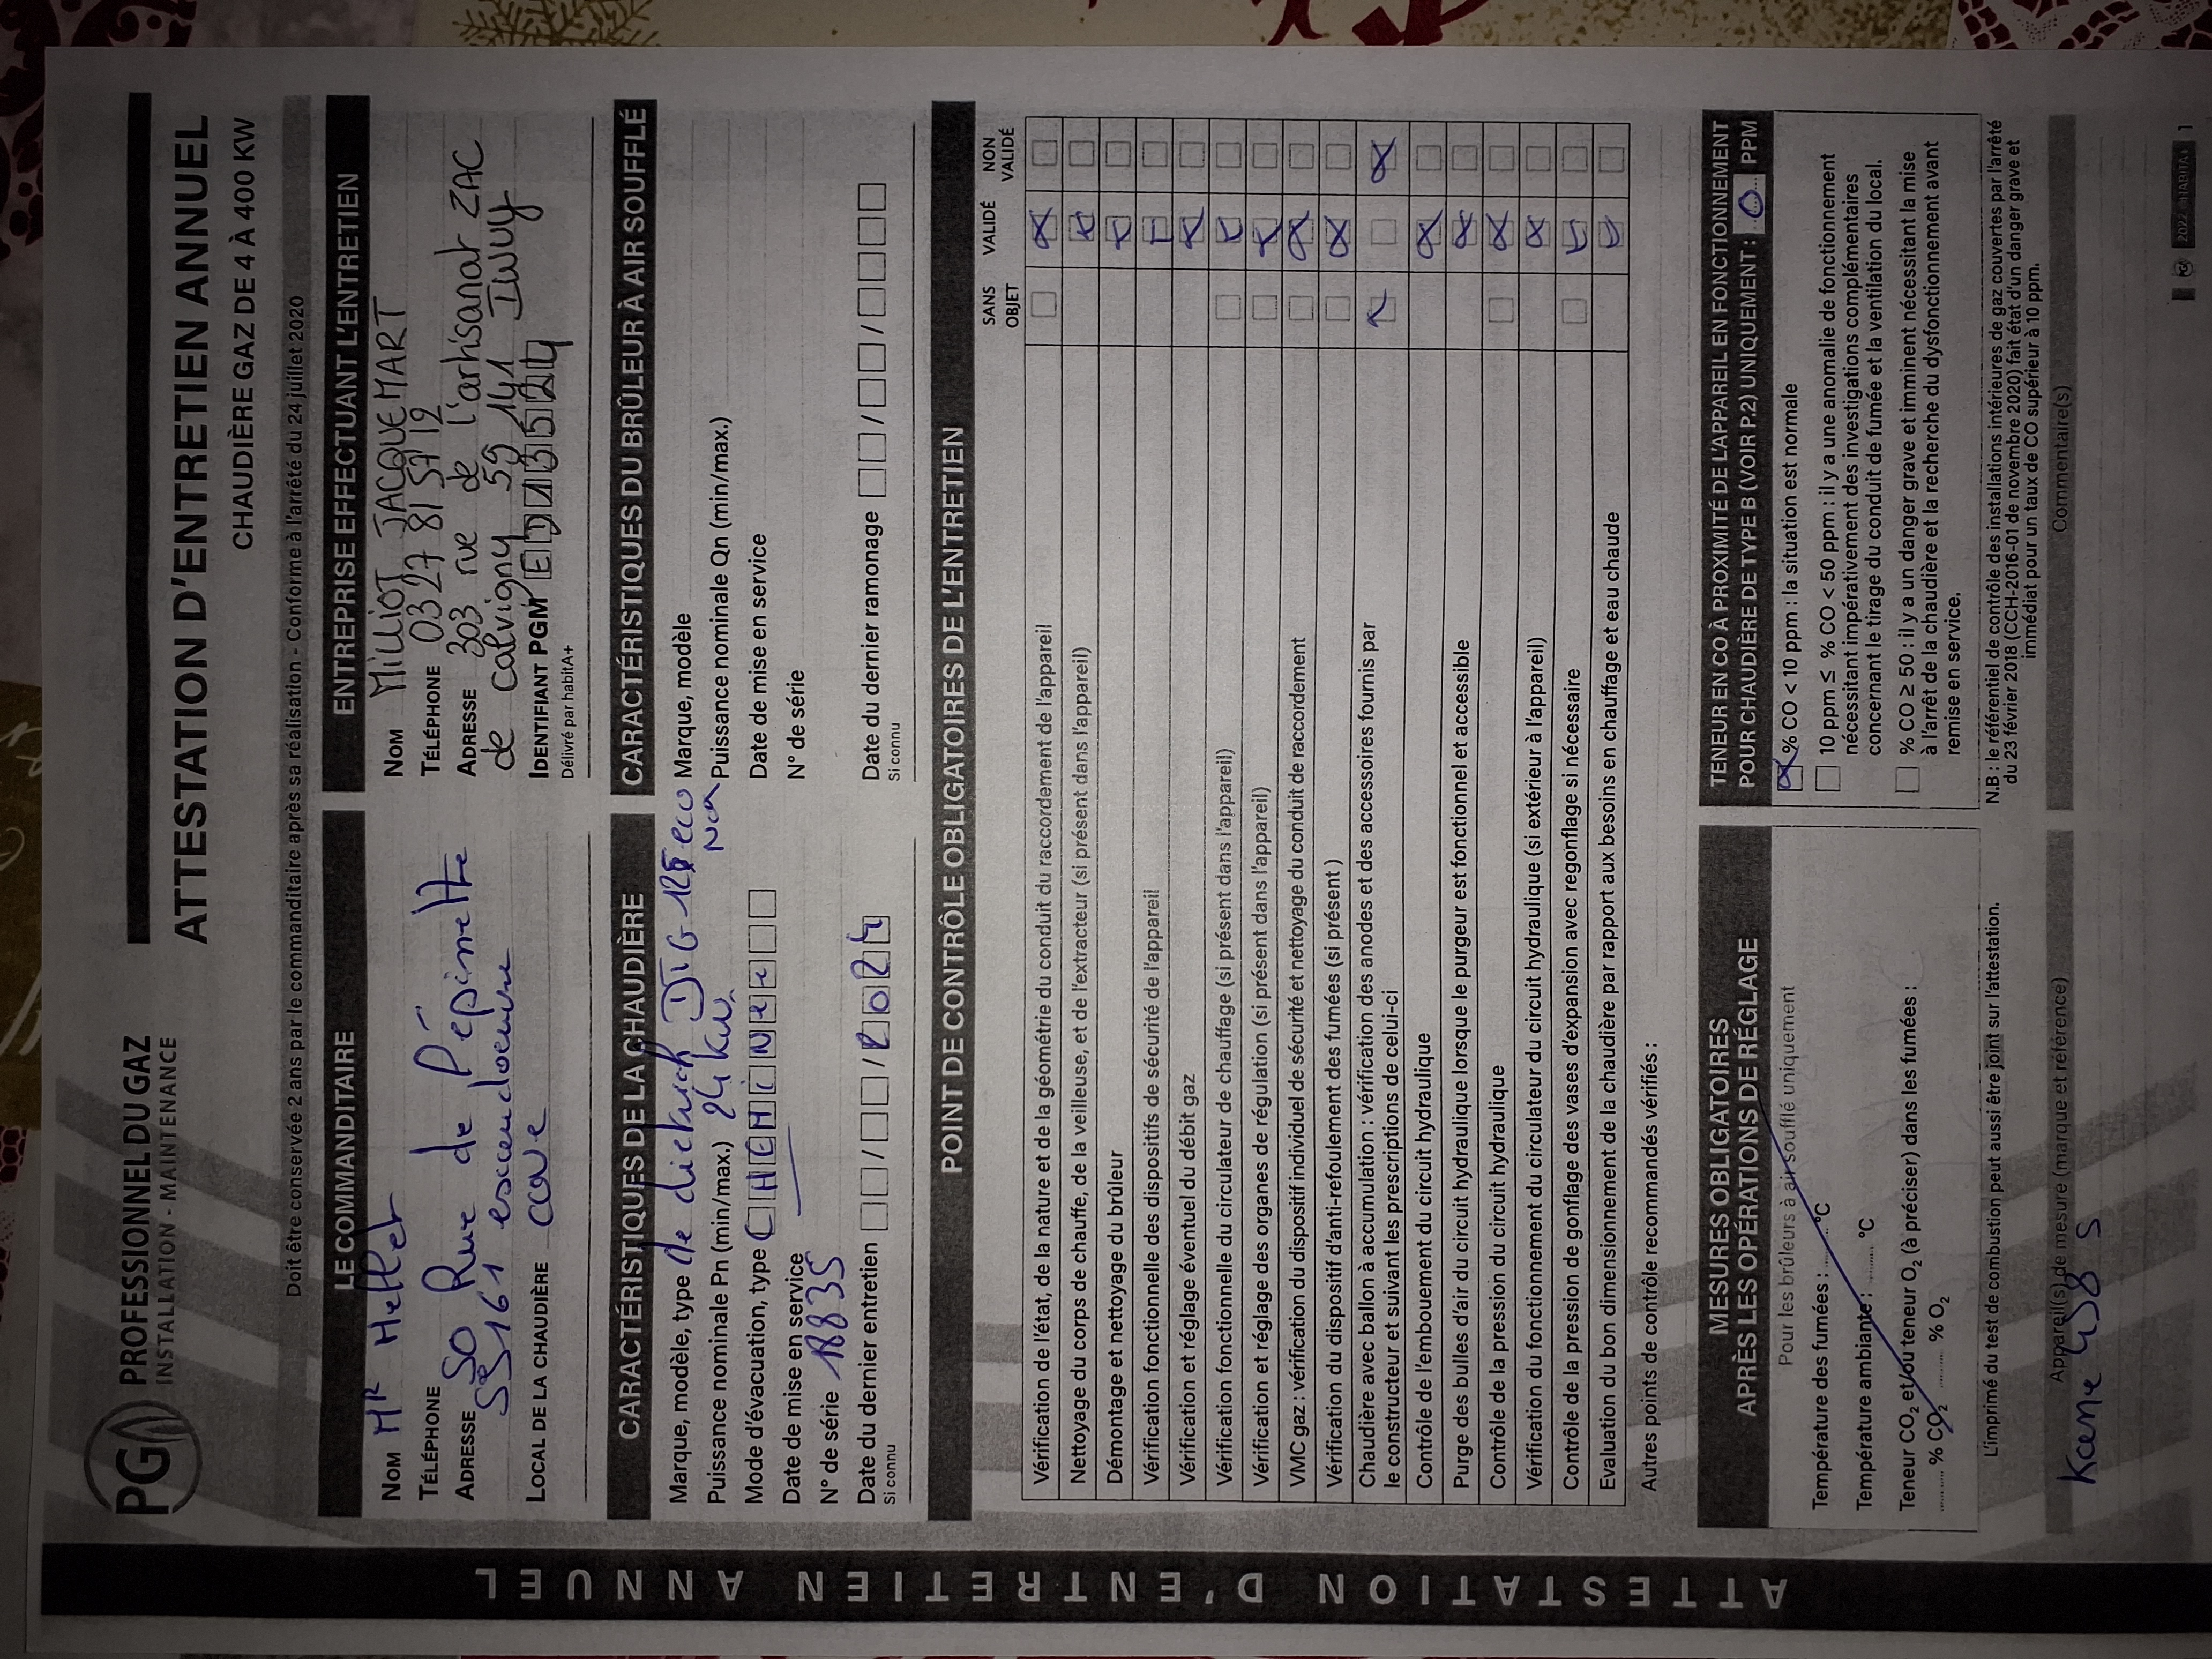 PG PROFESSIONNEL DU GAZ
INSTALLATION - MAINTENANCE
ATTESTATION D'ENTRETIEN ANNUEL
CHAUDIÈRE GAZ DE 4 À 400 KW
Doit être conservée 2 ans par le commanditaire après sa réalisation - Conforme à l'arrêté du 24 juillet 2020
LE COMMANDITAIRE
NOM Mr
TÉLÉPHONE
ADRESSE 50 Rue de l'épinette
59161 escaudoeuvre
LOCAL DE LA CHAUDIÈRE cave
ENTREPRISE EFFECTUANT L'ENTRETIEN
NOM MILLIOT JACQUEMART
TÉLÉPHONE 03 27 81 57 12
ADRESSE 303 rue de l'artisanat ZAC
de calvigny 59 141 Iwuy
IDENTIFIANT PGM
Délivré par habitA+
CARACTÉRISTIQUES DE LA CHAUDIÈRE
Marque, modèle, type de dietrich DTG eco
Puissance nominale Pn (min/max.) 24 kw
Mode d'évacuation, type CHEMiNee
Date de mise en service
N° de série 18835
Date du dernier entretien / / 2024
Si connu
CARACTÉRISTIQUES DU BRÛLEUR À AIR SOUFFLÉ
Marque, modèle
Puissance nominale Qn (min/max.)
Date de mise en service
N° de série
Date du dernier ramonage / /
Si connu
POINT DE CONTRÔLE OBLIGATOIRES DE L'ENTRETIEN
SANS OBJET VALIDÉ NON VALIDÉ
Vérification de l'état, de la nature et de la géométrie du conduit du raccordement de l'appareil
Nettoyage du corps de chauffe, de la veilleuse, et de l'extracteur (si présent dans l'appareil)
Démontage et nettoyage du brûleur
Vérification fonctionnelle des dispositifs de sécurité de l'appareil
Vérification et réglage éventuel du débit gaz
Vérification fonctionnelle du circulateur de chauffage (si présent dans l'appareil)
Vérification et réglage des organes de régulation (si présent dans l'appareil)
VMC gaz : vérification du dispositif individuel de sécurité et nettoyage du conduit de raccordement
Vérification du dispositif d'anti-refoulement des fumées (si présent )
Chaudière avec ballon à accumulation : vérification des anodes et des accessoires fournis par
le constructeur et suivant les prescriptions de celui-ci
Contrôle de l'embouement du circuit hydraulique
Purge des bulles d'air du circuit hydraulique lorsque le purgeur est fonctionnel et accessible
Contrôle de la pression du circuit hydraulique
Vérification du fonctionnement du circulateur du circuit hydraulique (si extérieur à l'appareil)
Contrôle de la pression de gonflage des vases d'expansion avec regonflage si nécessaire
Evaluation du bon dimensionnement de la chaudière par rapport aux besoins en chauffage et eau chaude
Autres points de contrôle recommandés vérifiés :
MESURES OBLIGATOIRES
APRÈS LES OPÉRATIONS DE RÉGLAGE
Pour les brûleurs à air soufflé uniquement
Température des fumées : ........ °C
Température ambiante : ........ °C
Teneur CO2 et/ou teneur O2 (à préciser) dans les fumées :
........ % CO2 ........ % O2
L'imprimé du test de combustion peut aussi être joint sur l'attestation.
Appareil(s) de mesure (marque et référence)
Kane
TENEUR EN CO À PROXIMITÉ DE L'APPAREIL EN FONCTIONNEMENT
POUR CHAUDIÈRE DE TYPE B (VOIR P.2) UNIQUEMENT : 0 PPM
% CO < 10 ppm : la situation est normale
10 ppm ≤ % CO < 50 ppm : il y a une anomalie de fonctionnement
nécessitant impérativement des investigations complémentaires
concernant le tirage du conduit de fumée et la ventilation du local.
% CO ≥ 50 : il y a un danger grave et imminent nécessitant la mise
à l'arrêt de la chaudière et la recherche du dysfonctionnement avant
remise en service.
N.B : le référentiel de contrôle des installations intérieures de gaz couvertes par l'arrêté
du 23 février 2018 (CCH-2016-01 de novembre 2020) fait état d'un danger grave et
immédiat pour un taux de CO supérieur à 10 ppm.
Commentaire(s)
2022 HABITA+ 1
ATTESTATION D'ENTRETIEN ANNUEL